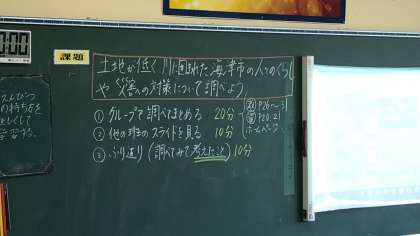 00
課題
土地が低く川に囲まれた海津市の人々のくらし
や災害の対策について調べよう
① グループで調べまとめる 20分
② 他の班のスライドを見る 10分
③ ふり返り（調べてみて考えたこと）10分
P26〜
P20.21
ホームページ